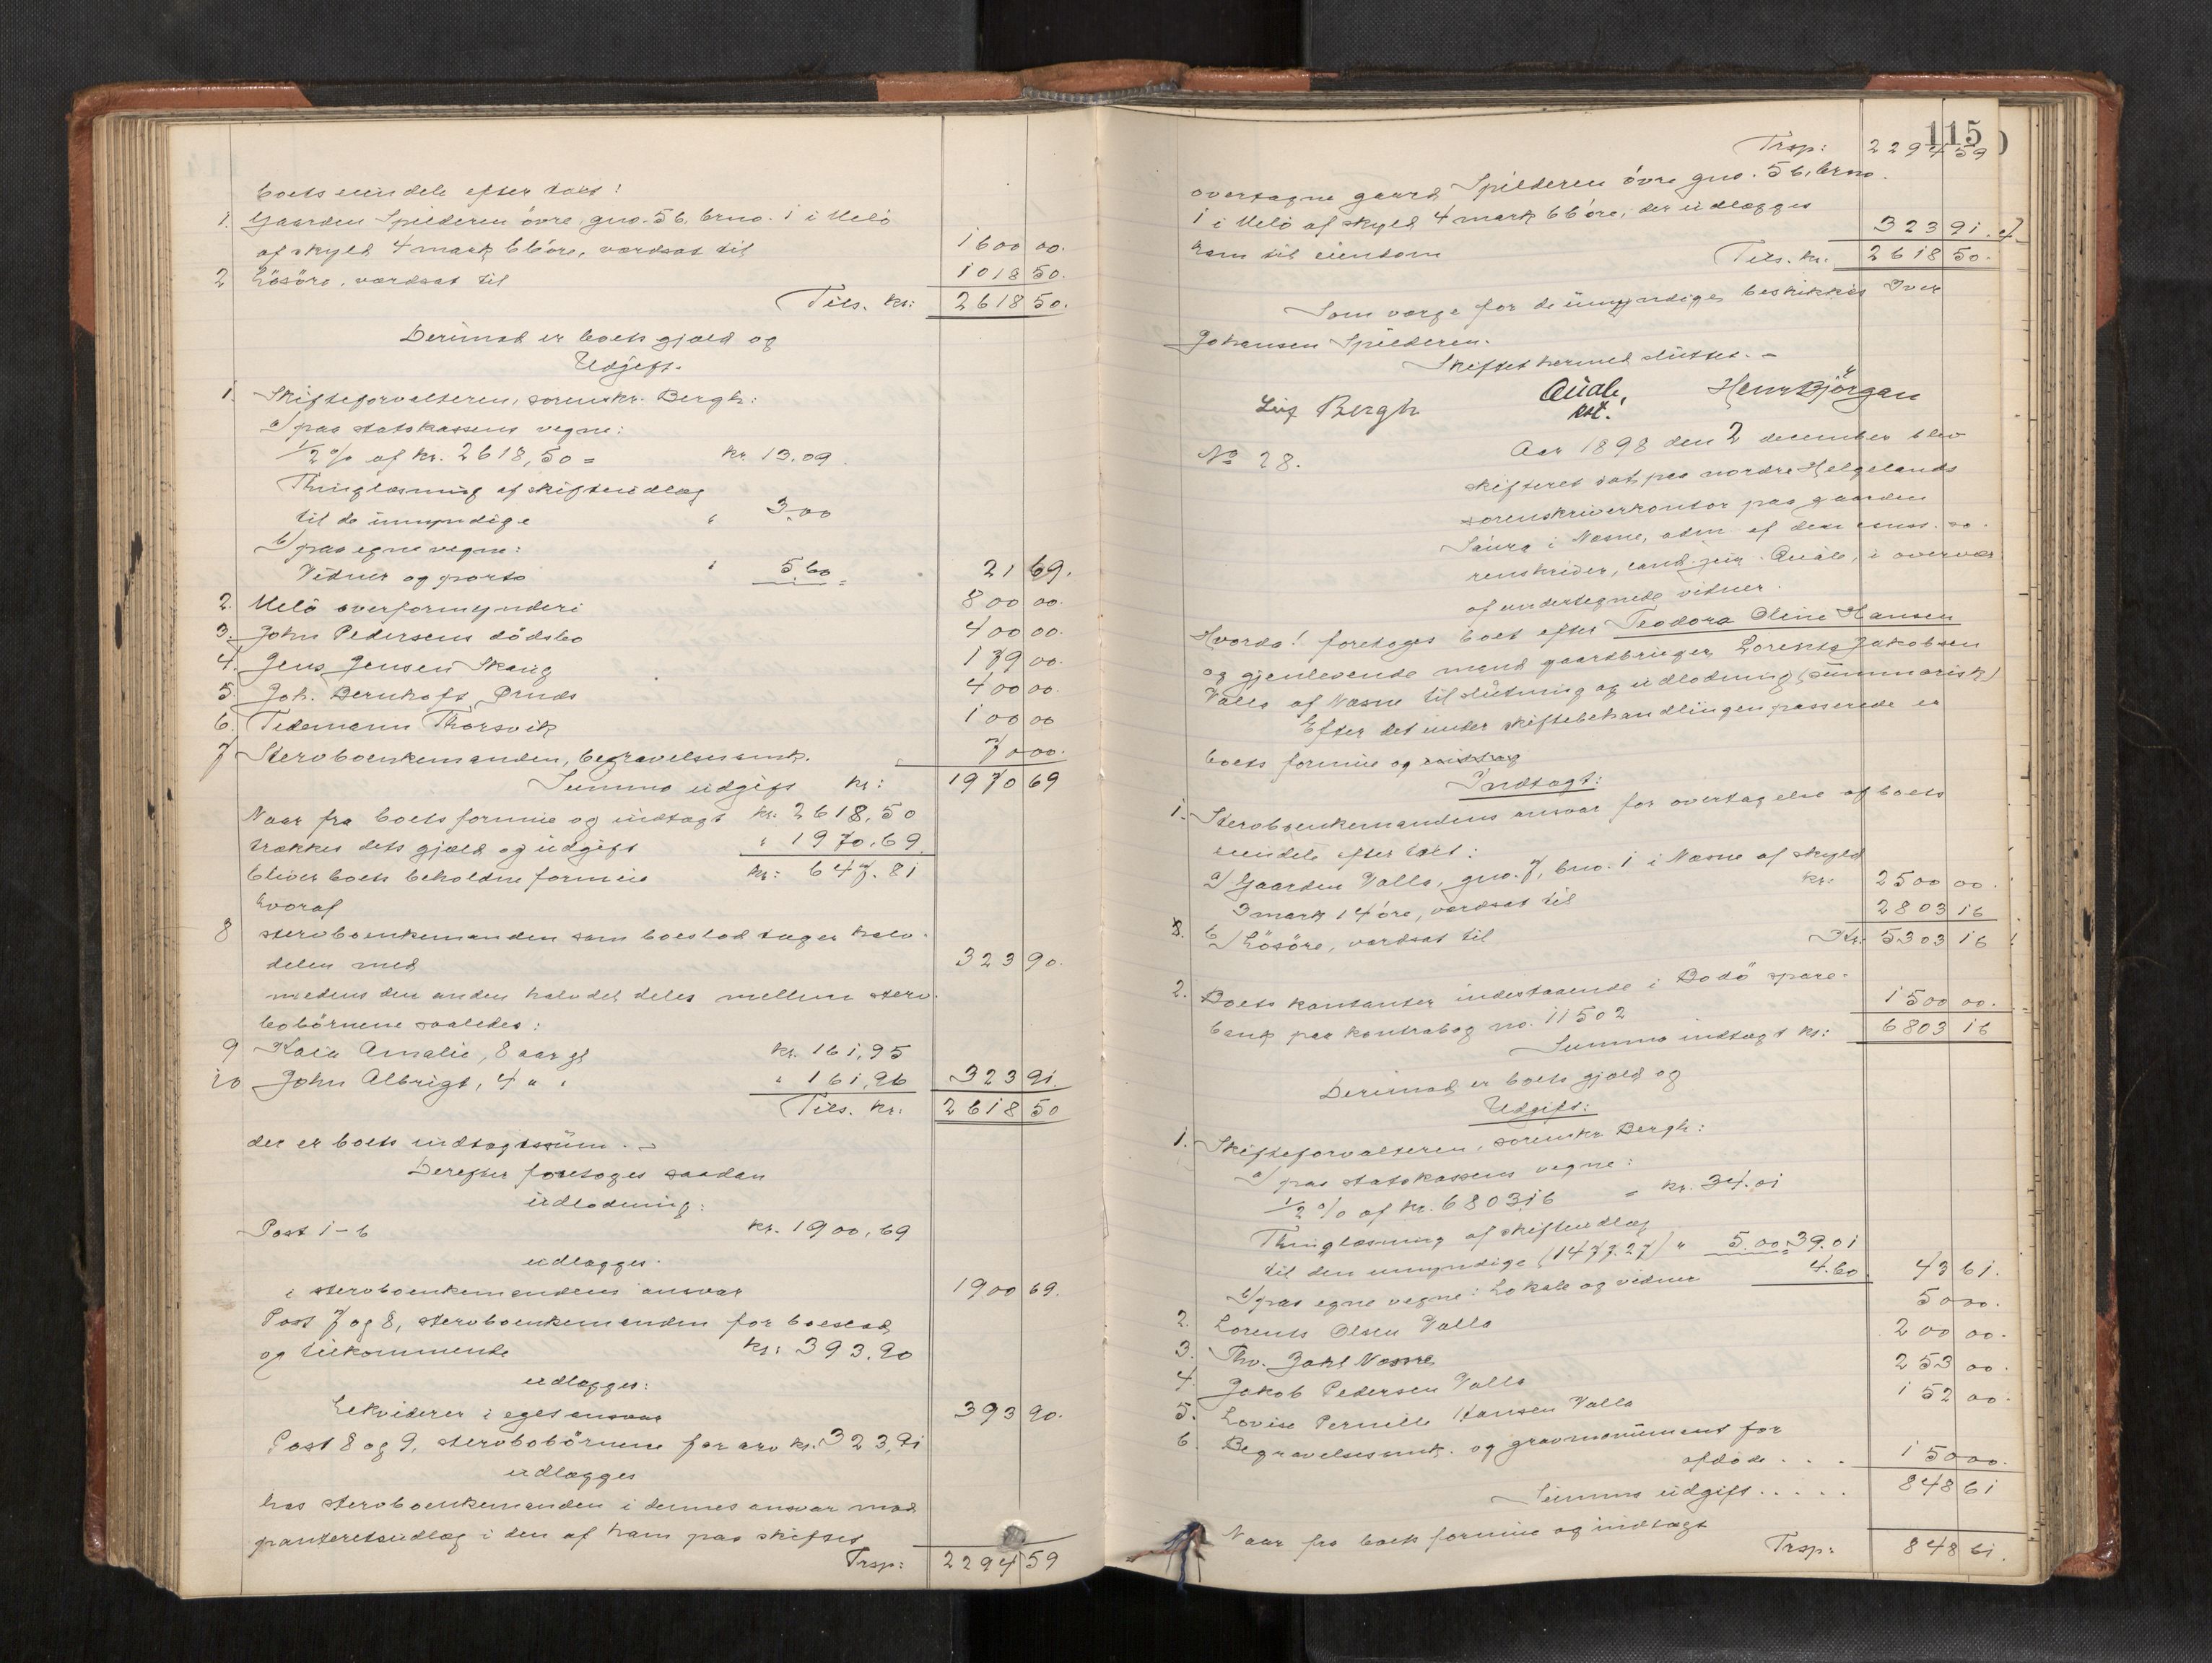 boets eiendele efter taxt:
1. Gaarden Spilderen övre, gno. 56, brno. 1 i Melö
af skyld 4 mark 66 öre, værdsat til 1600 00.
2 Lösöre, værdsat til 1018 50.
Tils. kr: 2618 50.
Derimod er boets gjæld og
Udgift.
1. Skifteforvalteren, sorenskr. Bergh:
a) paa statskassens vegne:
1/2 % af kr. 2618,50 = kr. 13.09.
Thinglæsning af skifteudlæg
til de umyndige " 3.00
b) paa egne vegne:
Vidner og porto " 5.60 = 21 69.
2. Melö overformynderi 800 00.
3. John Pedersens dödsbo 400 00.
4. Jens Jensen Skaug 179 00.
5. Joh. Bernhoft, Ørnes 400 00.
6. Tidemann Thorsvik 100 00
7 Stervboenkemanden, begravelsesomk. 70 00.
Summa udgift kr: 1970 69
Naar fra boets formue og indtægt kr. 2618,50
trækkes dets gjæld og udgift " 1970,69
bliver boets beholdne formue kr: 647.81
hvoraf
8 stervboenkemanden som boeslod tager halv-
delen med 323 90.
medens den anden halvdel deles mellem sterv-
bobörnene saaledes:
9 Kaia Amalie, 8 aar gl kr. 161,95
10 John Albrigt, 4 " " " 161,96 323 91.
Tils. kr: 2618 50
der er boets indtægtssum. -
Derefter foretoges saadan
udlodning:
Post 1-6 kr. 1900,69
udlægges
i stervboenkemandens ansvar 1900 69.
Post 7 og 8, stervboenkemanden for boeslod
og tilkommende kr: 393.90
udlægges:
Lekviderer i eget ansvar 393 90.
Post 8 og 9, stervbobörnene for arv kr. 323,91
udlægges
hos stervboenkemanden i dennes ansvar mod
panteretsudlæg i den af ham paa skiftet
Trsp: 2294 59
115
Trsp: 2294 59
overtagne gaard Spilderen övre gno. 56, brno.
1 i Melö af skyld 4 mark 66 öre, der udlægges
ham til eiendom 323 91.
Tils. kr. 2618 50.
Som værge for de umyndige beskikkes Iver
Johansen Spilderen.
Skiftet hermed sluttet. -
Leif Bergh Qvale, kst. Henr Björgan
No 28. Aar 1898 den 2 december blev
skifteret sat paa nordre Helgelands
sorenskriverkontor paa gaarden
Saura i Næsne, adm. af den const. so-
renskriver, cand. jur. Qvale, i overvær
af undertegnede vidner.
Hvorda! foretoges boet efter Teodora Oline Hansen
og gjenlevende mand gaardbruger Lorents Jakobsen
Valla af Næsne til slutning og udlodning (summarisk)
Efter det under skiftebehandlingen passerede er
boets formue og
Indtægt:
1. Stervboenkemandens ansvar for overtagelse af boets
eiendele efter taxt:
a) Gaarden Valla, gno. 7, bno. 1 i Næsne af skyld
3 mark 14 öre, værdsat til kr: 2500 00.
b) Lösöre, værdsat til 2803 16
Kr. 5303 16
2. Boets kontanter indestaaende i Bodö spare-
bank paa kontrabog no. 11502 1500 00.
Summa indtægt kr: 6803 16
Derimod er boets gjæld og
Udgift:
1. Skifteforvalteren, sorenskr. Bergh:
a) paa statskassens vegne:
1/2 % af kr. 6803,16 = kr. 34.01
Thinglæsning af skifteudlæg
til den umyndige (1477.27) " 5.00 39.01
b) paa egne vegne: Lokale og vidner 4.60 43 61.
2. Lorents Olsen Valla 50 00.
3. Thv. Zahl Næsne 200 00.
4. Jakob Pedersen Valla 253 00.
5. Lovise Pernille Hansen Valla 152 00.
6. Begravelsesomk. og gravmonument for
afdöde . . . 150 00.
Summa udgift . . . . . 848 61
Naar fra boets formue og indtægt
Trsp: 848 61.